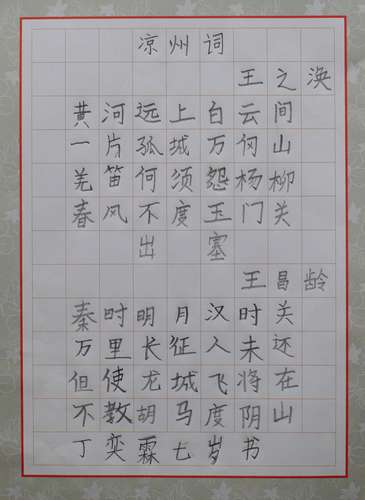 凉州词
王之涣
黄河远上白云间
一片孤城万仞山
羌笛何须怨杨柳
春风不度玉门关
出塞
王昌龄
秦时明月汉时关
万里长征人未还
但使龙城飞将在
不教胡马度阴山
丁奕霖七岁书